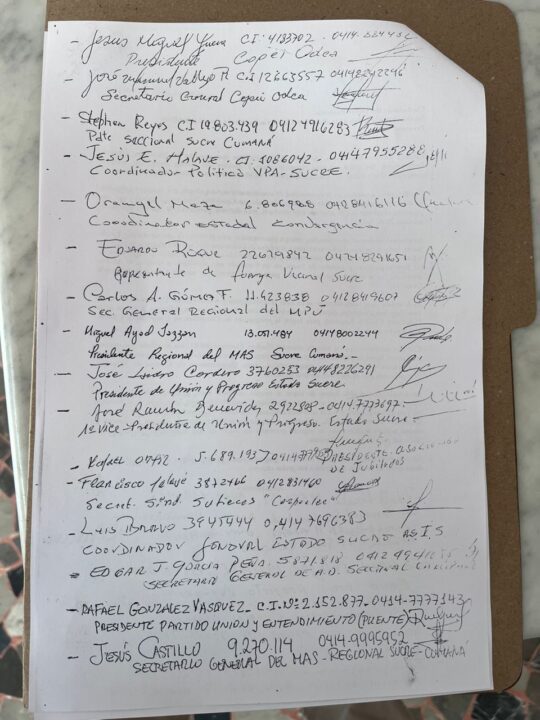 - Jesus Miguel C.I: 4183702 - 0414-
Presidente Copei Odca
- José Vallejo M C.I 12663557 04148242246
Secretario General Copei Odca
- Stephen Reyes C.I 19803.439 04127916283
Pdte seccional Sucre Cumaná
- JESÚS E. MALAVE. CI. 04147955288
Coordinador Politico VPA-SUCRE.
- Orangel Maza 6.806988 04128416116
Coordinador Estadal Convergencia
- EDUARDO 22679842
Representante de fuerza Vecinal Sucre
- Carlos A. Gómez F. 11.423838 04128419607
Sec. General Regional del MPJ
- Miguel 13.051.484 04148002244
Presidente Regional del MAS Sucre Cumaná.-
- José Isidro Cordero 3760253 04148226291
Presidente de Unión y Progreso Estado Sucre
- José Ramón Benavides 2922808-0414.7773697-
1er Vice-Presidente de Unión y Progreso. Estado Sucre-
- Rafael 5.689.195
PRESIDENTE ASOCIACION
DE JUBILADOS
- Francisco Malavé 3872466 0412831460
Secret. Sind.
- LUIS BRAVO 3945444 0,414 7696383
COORDINADOR GENERAL ESTADO SUCRE
- EDGAR J. GARCIA PEÑA. 5871.818
SECRETARIO GENERAL DE A.D. SECCIONAL
- RAFAEL GONZALEZ VASQUEZ_ C.I.Nº:2.152.877-0414-7777143
PRESIDENTE PARTIDO UNION Y ENTENDIMIENTO (PUENTE)
- JESÚS CASTILLO 9.270.114 0414-9995952
SECRETARIO GENERAL DEL MAS - REGIONAL SUCRE-CUMANÁ